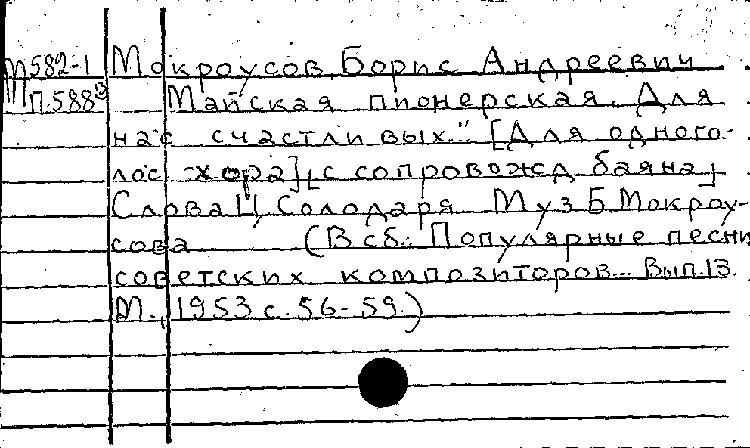 М582-1 Мокроусов, Борис Андреевич
П.588³ Майская пионерская. Для
нас счастливых." [Для одного-
лос хора] [с сопровожд баяна]
Слова Ц Солодаря Муз Б Мокроу-
сова (В сб.: Популярные песни
советских композиторов. Вып.13.
М., 1953 с. 56-59.)